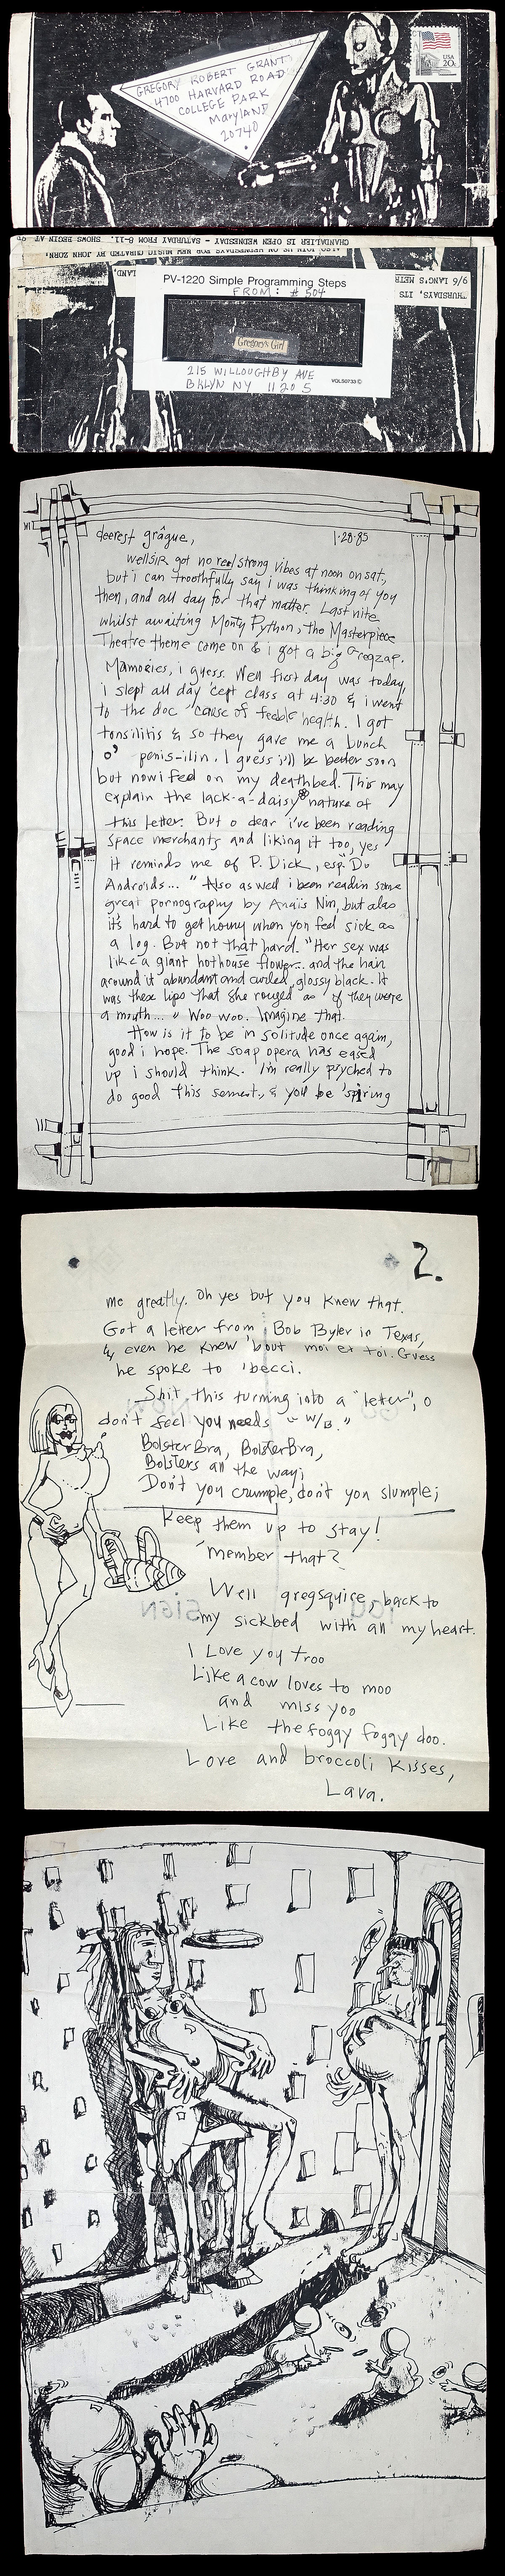 GREGORY ROBERT GRANT
4700 HARVARD ROAD
COLLEGE PARK
Maryland
20740
USA
20c
CHANDALIER IS OPEN WEDNESDAY - SATURDAY FROM 8-11. SHOWS BEGIN AT
ALSO JOIN US ON WEDNESDAYS FOR NEW MUSIC CURATED BY JOHN ZORN.
THURSDAYS, ITS
9/6 LANG'S METR
LAND,
PV-1220 Simple Programming Steps
FROM: # 504
Gregory's Girl
215 WILLOUGHBY AVE
BKLYN NY 11205
VQLS0733
deerest grâgue,
1·28·85
wellSIR got no reel strong vibes at noon on sat.,
but i can troothfully say i was thinking of you
then, and all day for that matter. Last nite
whilst awaiting Monty Python, the Masterpiece
Theatre theme come on & i got a big Gregzap.
Mamories, i guess. Well first day was today,
i slept all day 'cept class at 4:30 & i went
to the doc 'cause of feeble health. I got
tonsilitis & so they gave me a bunch
o' penis-ilin. I guess i'll be better soon
but now i feel on my deathbed. This may
explain the lack-a-daisy nature of
this letter. But o dear i've been reading
space merchants and liking it too, yes
it reminds me of P. Dick, esp. "Do
Androids..." Also as well i been readin some
great pornography by Anaïs Nin, but alas
it's hard to get horny when you feel sick as
a log. But not that hard. "Her sex was
like a giant hothouse flower... and the hair
around it abundant and curled, glossy black. It
was these lips that she rouged as if they were
a mouth..." Woo woo. Imagine that.
How is it to be in solitude once again,
good i hope. The soap opera has eased
up i should think. I'm really psyched to
do good this semest., & you'll be 'spiring
2.
me greatly. Oh yes but you knew that.
Got a letter from Bob Byler in Texas,
& even he knew 'bout moi et toi. Guess
he spoke to 'becci.
Shit, this turning into a "letter", o
don't feel you needs "W/B."
BolsterBra, BolsterBra,
Bolsters all the way;
Don't you crumple, don't you slumple;
Keep them up to stay!
'member that?
Well gregsquire, back to
my sickbed with all my heart.
I Love you troo
Like a cow loves to moo
and miss yoo
Like the foggy foggy doo.
Love and broccoli kisses,
Lava.